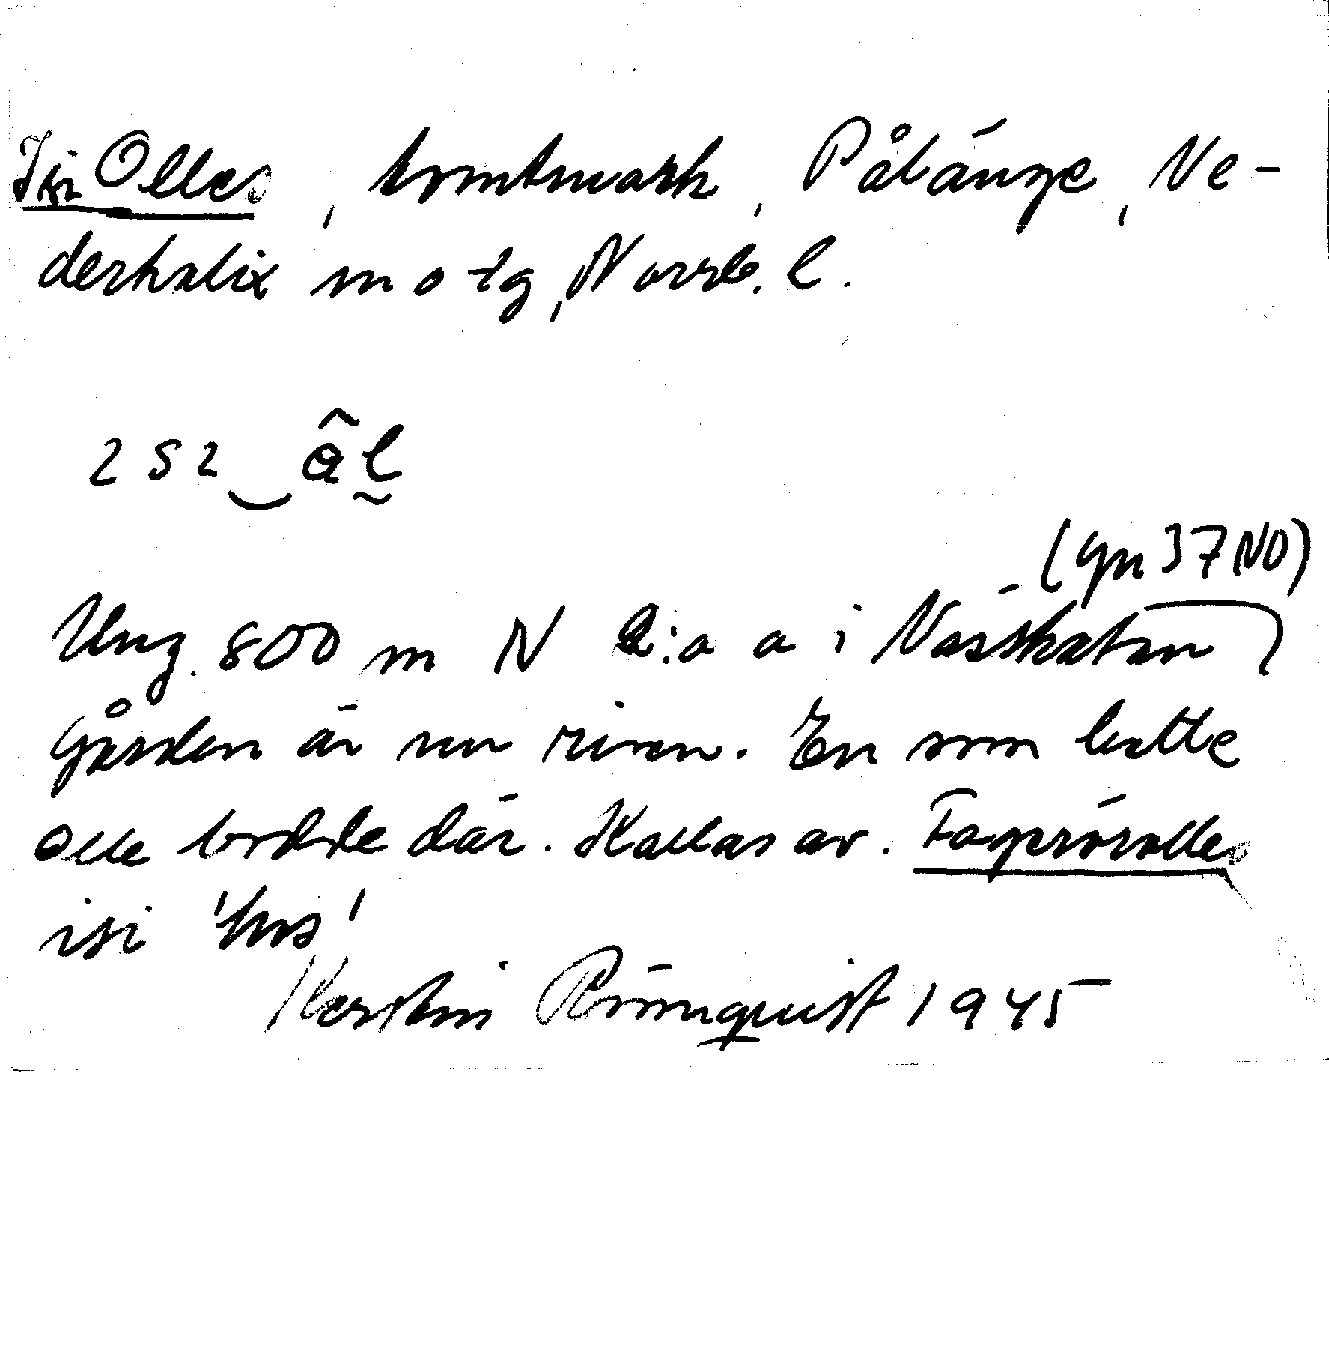 Isi Olles, tomtmark, Pålänge, Ne-
derkalix sn o tg, Norrb. l.
(gn 37 NO)
Ung. 800 m N l:a a i Nässkatan
Gården är nu riven. En som hette
Olle bodde där. Kallas av.
isi 'hos'
Kerstin Rönnquist 1945